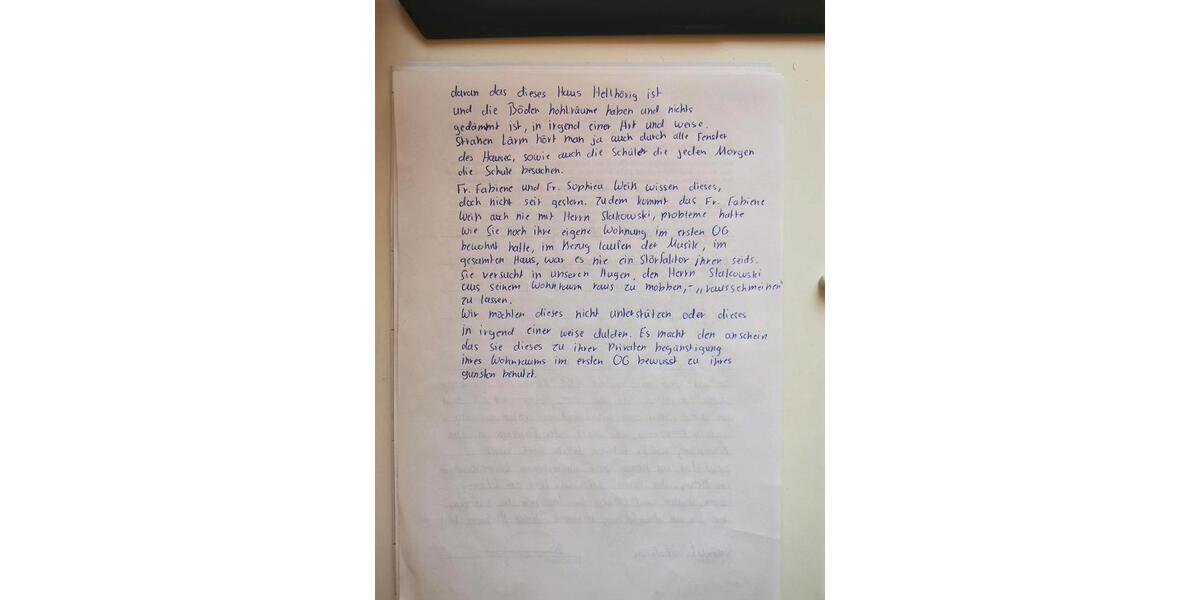 daran das dieses Haus Hellhörig ist
und die Böden hohlräume haben und nichts
gedämmt ist, in irgend einer Art und weise.
Straßen Lärm hört man ja auch durch alle Fenster
des Hauses, sowie auch die Schüler die jeden Morgen
die Schule besuchen.
Fr. Fabiene und Fr. Sophiea Weiß wissen dieses,
doch nicht seit gestern. Zudem kommt das Fr. Fabiene
Weiß auch nie mit Herrn Slakowski, probleme hatte
wie Sie noch ihre eigene Wohnung im ersten OG
bewohnt hatte, im Bezug laufen der Musik, im
gesamten Haus, war es nie ein Störfaktor ihrer seids.
Sie versucht in unseren Augen, den Herrn Slakowski
aus seinem Wohnraum raus zu mobben,- „rausschmeißen"
zu lassen.
Wir möchten dieses nicht unterstützen oder dieses
in irgend einer weise dulden. Es macht den anschein
das sie dieses zu ihrer Privaten begünstigung
ihres Wohnraums im ersten OG bewusst zu ihres
gunsten benutzt.